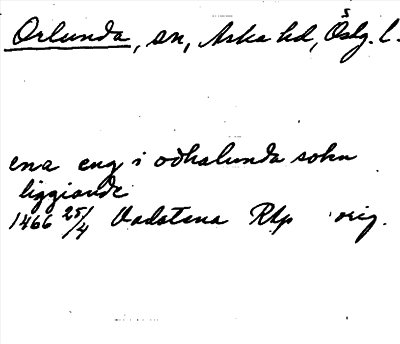 Orlunda, sn, Aska hd, Östg. l.
ena eng i odhalunda sokn
liggiande
1466 25/4 Vadstena RAp orig.